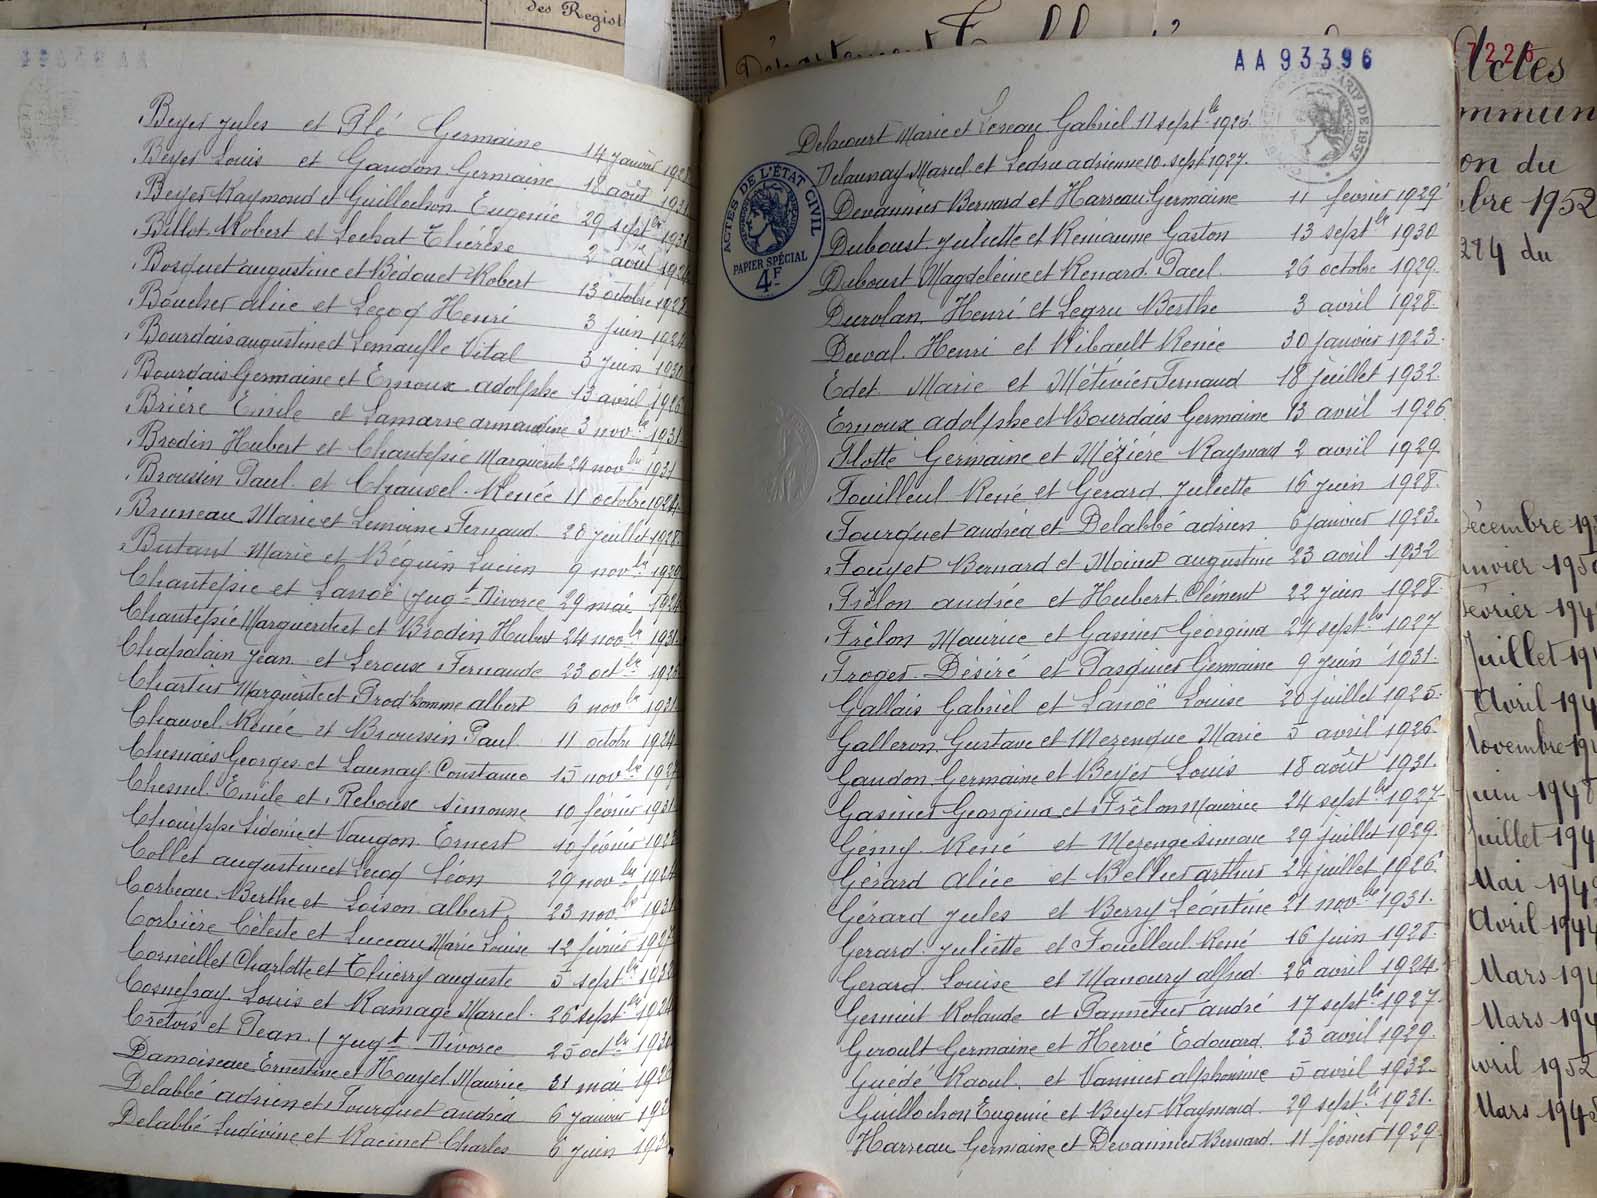 des Regist
AA 93396
Beyer Jules et Plé Germaine 14 janvier 1928
Beyer Louis et Gaudon Germaine 18 août 1931
Beyer Raymond et Guillochon Eugénie 29 sept bre 1931
Billot Robert et Lechat Thérèse 2 août 192
Bosquet augustine et Bédouet Robert 13 octobre 192
Boucher alice et Lecoq Henri 3 juin 192
Bourdais augustine et Lemaufle Vital 3 juin 193
Bourdais Germaine et Ernoux adolphe 13 avril 1926
Brière Emile et Lamarre armandine 3 nov bre 1931
Brodin Hubert et Chantepie Marguerite 24 nov bre 1931
Broussin Paul et Chauvel Renée 11 octobre 1924
Bruneau Marie et Lemoine Fernand 28 juillet 1928
Butant Marie et Béquin Lucien 9 nov bre 192
Chantepie et Lanoë (Jug t Divorce 29 mai 192
Chantepié Marguerite et Brodin Hubert 24 nov bre 1931
Chapalain Jean et Leroux Fernande 23 oct bre 192
Chartier Marguerite et Prod'homme albert 6 nov bre 1931
Chauvel Renée et Broussin Paul 11 octobre 1924
Chesnais Georges et Launay Constance 15 nov bre 192
Chesnel Emile et Reboux Simonne 10 février 1931
Chouippe Sidonie et Vaugon Ernest 10 février 192
Collet augustine et Lecoq Léon 29 nov bre 192
Corbeau Berthe et Loison albert 23 nov bre 1931
Corbière Céleste et Luceau Marie Louise 12 février 192
Corneillet Charlotte et Thierry auguste 5 sept bre 19
Cosnefray Louis et Ramage Marcel 26 sept bre 19
Crétois et Pean (Jug t Divorce 25 oct bre 193
Damoiseau Ernestine et Houyel Maurice 31 mai 192
Delabbé adrien et Fourquet andréa 6 janvier 192
Delabbé Ludivine et Racinet Charles 6 juin 19
ACTES DE L'ÉTAT CIVIL
PAPIER SPÉCIAL
4F
Delacourt Marie et Leseau Gabriel 11 sept bre 1926
Delaunay Marcel et Ledru adrienne 10 sept 1927.
Devannier Bernard et Harreau Germaine 11 février 1929
Duboust Juliette et Réniaume Gaston 13 sept bre 1930
Duboust Magdeleine et Renard Paul 26 octobre 1929
Durolan Henri et Legru Berthe 3 avril 1928.
Duval Henri et Ribault Renée 30 janvier 1923.
Edet Marie et Métivier Fernand 18 juillet 1932.
Ernoux adolphe et Bourdais Germaine 13 avril 1926
Flotté Germaine et Mézière Raymond 2 avril 1929
Fouilleul René et Gerard Juliette 16 juin 1928.
Fourquet andréa et Delabbé adrien 6 janvier 1923.
Fouyet Bernard et Moinet augustine 23 avril 1932
Frêlon andrée et Hubert Clément 22 juin 1928
Frêlon Maurice et Gasnier Géorgina 24 sept bre 1927
Froger Désiré et Pasquier Germaine 9 juin 1931.
Gallais Gabriel et Lanoë Louise 20 juillet 1925
Galleron Gustave et Mezenque Marie 5 avril 1926
Gaudon Germaine et Beyer Louis 18 août 1931.
Gasnier Georgina et Frêlon Maurice 24 sept bre 1927
Gémy René et Mezenge Simone 29 juillet 1929.
Gérard alice et Bellier arthur 24 juillet 1926
Gérard Jules et Berry Léontine 21 nov bre 1931.
Gerard Juliette et Fouilleul René 16 juin 1928
Gerard Louise et Manoury alfred 26 avril 1924
Gesnuit Rolande et Pannetier andré 17 sept bre 1927
Geroult Germaine et Hervé Edouard 23 avril 1929
Guédé Raoul et Vannier alphonsine 5 avril 1932
Guillochon Eugénie et Beyer Raymond 29 sept bre 1931.
Harreau Germaine et Devannier Bernard 11 février 1929
Actes
mmun
on du
bre 1952
274 du
écembre 19
nvier 195
évrier 194
Juillet 194
Avril 194
Novembre 19
juin 1948
Juillet 194
Mai 194
Avril 194
Mars 194
Mars 194
vril 1952
Mars 194